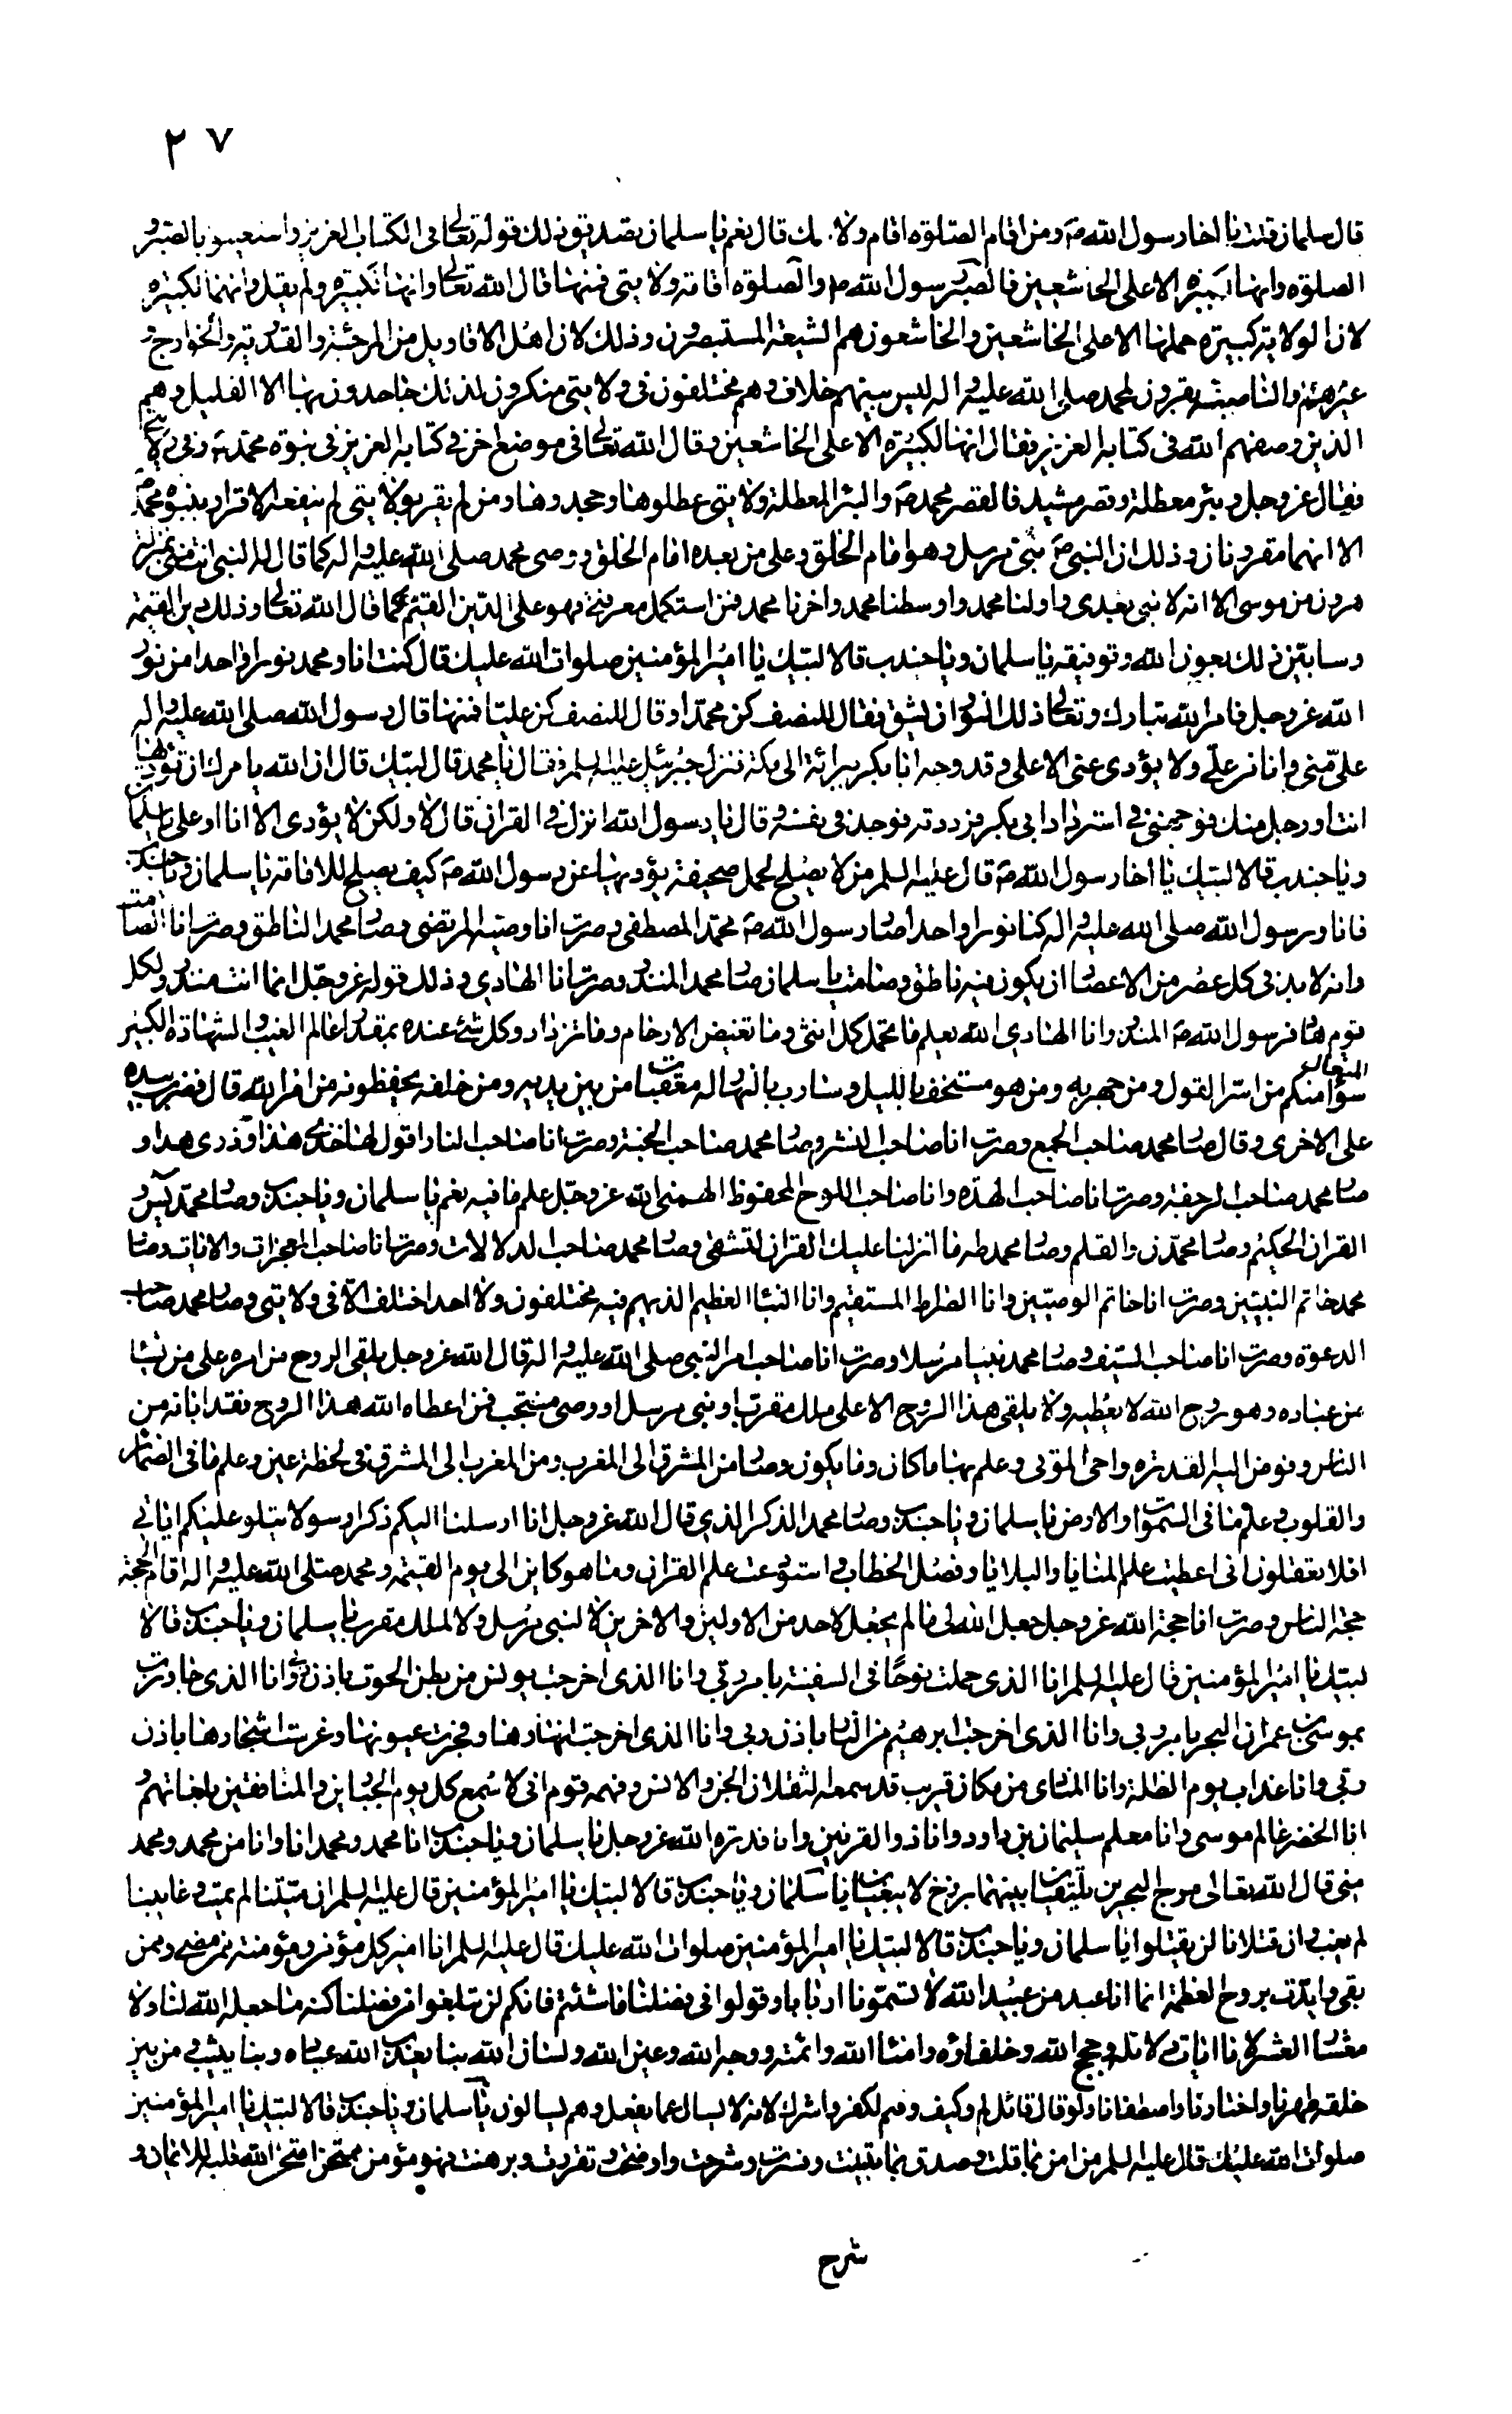 ٢٧
قال سلمان قلت يا اخا رسول الله ص ومن اقام الصلوة اقام ولايتك قال نعم يا سلمان تصديق ذلك قوله تعالى في الكتاب العزيز واستعينوا بالصبر و
الصلوة وانها لكبيرة الا على الخاشعين فالصبر رسول الله ص والصلوة اقامة ولايتي فمنها قال الله تعالى وانها لكبيرة ولم يقل وانهما لكبيرة
لان الولاية كبيرة حملها الا على الخاشعين والخاشعون هم الشيعة المستبصرون وذلك لان اهل الاقاويل من المرجئة والقدرية والخوارج و
غيرهم والناصبية يقرون لمحمد صلى الله عليه واله ليس بينهم خلاف وهم مختلفون في ولايتي منكرون لذلك جاحدون بها الا القليل وهم
الذين وصفهم الله في كتابه العزيز فقال انها لكبيرة الا على الخاشعين وقال الله تعالى في موضع اخر في كتابه العزيز في نبوة محمد ص وفي ولايتي
فقال عز وجل وبئر معطلة وقصر مشيد فالقصر محمد ص والبئر المعطلة ولايتي عطلوها وجحدوها ومن لم يقر بولايتي لم ينفعه الاقرار بنبوة محمد ص
الا انهما مقرونان وذلك ان النبي ص نبي مرسل وهو امام الخلق وعلي من بعده امام الخلق ووصي محمد صلى الله عليه واله كما قال له النبي انت مني بمنزلة
هرون من موسى الا انه لا نبي بعدي واولنا محمد واوسطنا محمد واخرنا محمد فمن استكمل معرفتي فهو على الدين القيم كما قال الله تعالى وذلك دين القيمة
وسابين ذلك بعون الله وتوفيقه يا سلمان ويا جندب قالا لبيك يا امير المؤمنين صلوات الله عليك قال كنت انا ومحمد نورا واحدا من نور
الله عز وجل فامر الله تبارك وتعالى ذلك النور ان يشق فقال للنصف كن محمدا وقال للنصف كن عليا فمنها قال رسول الله صلى الله عليه واله
علي مني وانا من علي ولا يؤدي عني الا علي وقد وجه ابا بكر ببرائة الى مكة فنزل جبرئيل عليه السلم فقال يا محمد قال لبيك قال ان الله يامرك ان تؤديها
انت او رجل منك فوجهني في استرداد ابي بكر فرددته فوجد في نفسه وقال يا رسول الله انزل في القران قال لا ولكن لا يؤدي الا انا او علي يا سلمان
ويا جندب قالا لبيك يا اخا رسول الله ص قال عليه السلم من لا يصلح لحمل صحيفة يؤديها عن رسول الله ص كيف يصلح للامامة يا سلمان ويا جندب
فانا ورسول الله صلى الله عليه واله كنا نورا واحدا صار رسول الله ص محمد المصطفى وصرت انا وصيه المرتضى وصار محمد الناطق وصرت انا الصامت
وانه لا بد في كل عصر من الاعصار ان يكون فيه ناطق وصامت يا سلمان صار محمد المنذر وصرت انا الهادي وذلك قوله عز وجل انما انت منذر ولكل
قوم هاد فرسول الله ص المنذر وانا الهادي الله يعلم ما تحمل كل انثى وما تغيض الارحام وما تزداد وكل شئ عنده بمقدار عالم الغيب والشهادة الكبير
المتعال
سواء منكم من اسر القول ومن جهر به ومن هو مستخف بالليل وسارب بالنهار له معقبات من بين يديه ومن خلفه يحفظونه من امر الله قال فضرب بيده
على الاخرى وقال صار محمد صاحب الجمع وصرت انا صاحب النشر وصار محمد صاحب الجنة وصرت انا صاحب النار اقول لها خذي هذا وذري هذا و
صار محمد صاحب الرجفة وصرت انا صاحب الهدة وانا صاحب اللوح المحفوظ الهمني الله عز وجل علم ما فيه نعم يا سلمان ويا جندب وصار محمد يس و
القران الحكيم وصار محمد ن والقلم وصار محمد طه ما انزلنا عليك القران لتشقى وصار محمد صاحب الدلالات وصرت انا صاحب المعجزات والايات وصار
محمد خاتم النبيين وصرت انا خاتم الوصيين وانا الصراط المستقيم وانا النبا العظيم الذي هم فيه مختلفون ولا احد اختلف الا في ولايتي وصار محمد صاحب
الدعوة وصرت انا صاحب السيف وصار محمد نبيا مرسلا وصرت انا صاحب امر النبي صلى الله عليه واله قال الله عز وجل يلقي الروح من امره على من يشاء
من عباده وهو روح الله لا يعطيه ولا يلقي هذا الروح الا على ملك مقرب او نبي مرسل او وصي منتجب فمن اعطاه الله هذا الروح فقد ابانه من
الناس وفوض اليه القدرة واحيى الموتى وعلم بها ما كان وما يكون وصار من المشرق الى المغرب ومن المغرب الى المشرق في لحظة عين وعلم ما في الضمائر
والقلوب وعلم ما في السموات والارض يا سلمان ويا جندب وصار محمد الذكر الذي قال الله عز وجل انا ارسلنا اليكم ذكرا رسولا يتلو عليكم اياتي
افلا تعقلون اني اعطيت علم المنايا والبلايا وفصل الخطاب واستودعت علم القران وما هو كاين الى يوم القيمة ومحمد صلى الله عليه واله اقام الحجة
حجة للناس وصرت انا حجة الله عز وجل جعل الله لي ما لم يجعل لاحد من الاولين والاخرين لا لنبي مرسل ولا لملك مقرب يا سلمان ويا جندب قالا
لبيك يا امير المؤمنين قال عليه السلم انا الذي حملت نوحا في السفينة بامر ربي وانا الذي اخرجت يونس من بطن الحوت باذن ربي وانا الذي جاوزت
بموسى بن عمران البحر بامر ربي وانا الذي اخرجت ابرهيم من النار باذن ربي وانا الذي اجريت انهارها وفجرت عيونها وغرست اشجارها باذن
ربي وانا عذاب يوم الظلة وانا المنادي من مكان قريب قد سمعه الثقلان الجن والانس وفهمه قوم اني لاسمع كل يوم الجبارين والمنافقين بلغاتهم و
انا الخضر عالم موسى وانا معلم سليمان بن داود وانا ذو القرنين وانا قدرة الله عز وجل يا سلمان ويا جندب انا محمد ومحمد انا وانا من محمد ومحمد
مني قال الله تعالى مرج البحرين يلتقيان بينهما برزخ لا يبغيان يا سلمان ويا جندب قالا لبيك يا امير المؤمنين قال عليه السلم ان ميتنا لم يمت وغايبنا
لم يغب وان قتلانا لن يقتلوا يا سلمان ويا جندب قالا لبيك يا امير المؤمنين صلوات الله عليك قال عليه السلم انا امير كل مؤمن ومؤمنة ممن مضى وممن
بقي وايدت بروح العظمة انما انا عبد من عبيد الله لا تسمونا اربابا وقولوا في فضلنا ما شئتم فانكم لن تبلغوا من فضلنا كنه ما جعله الله لنا ولا
معشار العشر لانا ايات الله ودلائله وحجج الله وخلفاؤه وامناء الله وائمته ووجه الله وعين الله ولسان الله بنا يعذب الله عباده وبنا يثيب ومن بين
خلقه طهرنا واختارنا واصطفانا ولو قال قائل لم وكيف وفيم لكفر واشرك لانه لا يسال عما يفعل وهم يسالون يا سلمان ويا جندب قالا لبيك يا امير المؤمنين
صلوات الله عليك قال عليه السلم من امن بما قلت وصدق بما بينت وفسرت وشرحت واوضحت ونورت وبرهنت فهو مؤمن ممتحن امتحن الله قلبه للايمان و
شرح